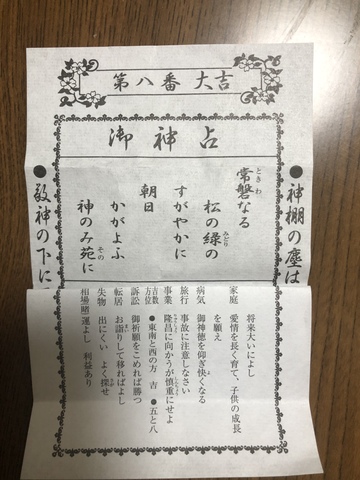 第八番 大吉
御神占
●神棚の塵は
常磐なる
ときわ
松の緑の
みどり
すがやかに
朝日
かがよふ
神のみ苑に
その
●敬神の下に
将来大いによし
家庭 愛情を長く育て、子供の成長
を願え
病気 御神徳を仰ぎ快くなる
旅行 事故に注意しなさい
事業 隆昌に向かうが慎重にせよ
吉数方位 ●東南と西の方 吉 ●五と八
訴訟 御祈願をこめれば勝つ
転居 お詣りして移ればよし
失物 出にくい よく探せ
相場賭 運よし 利益あり